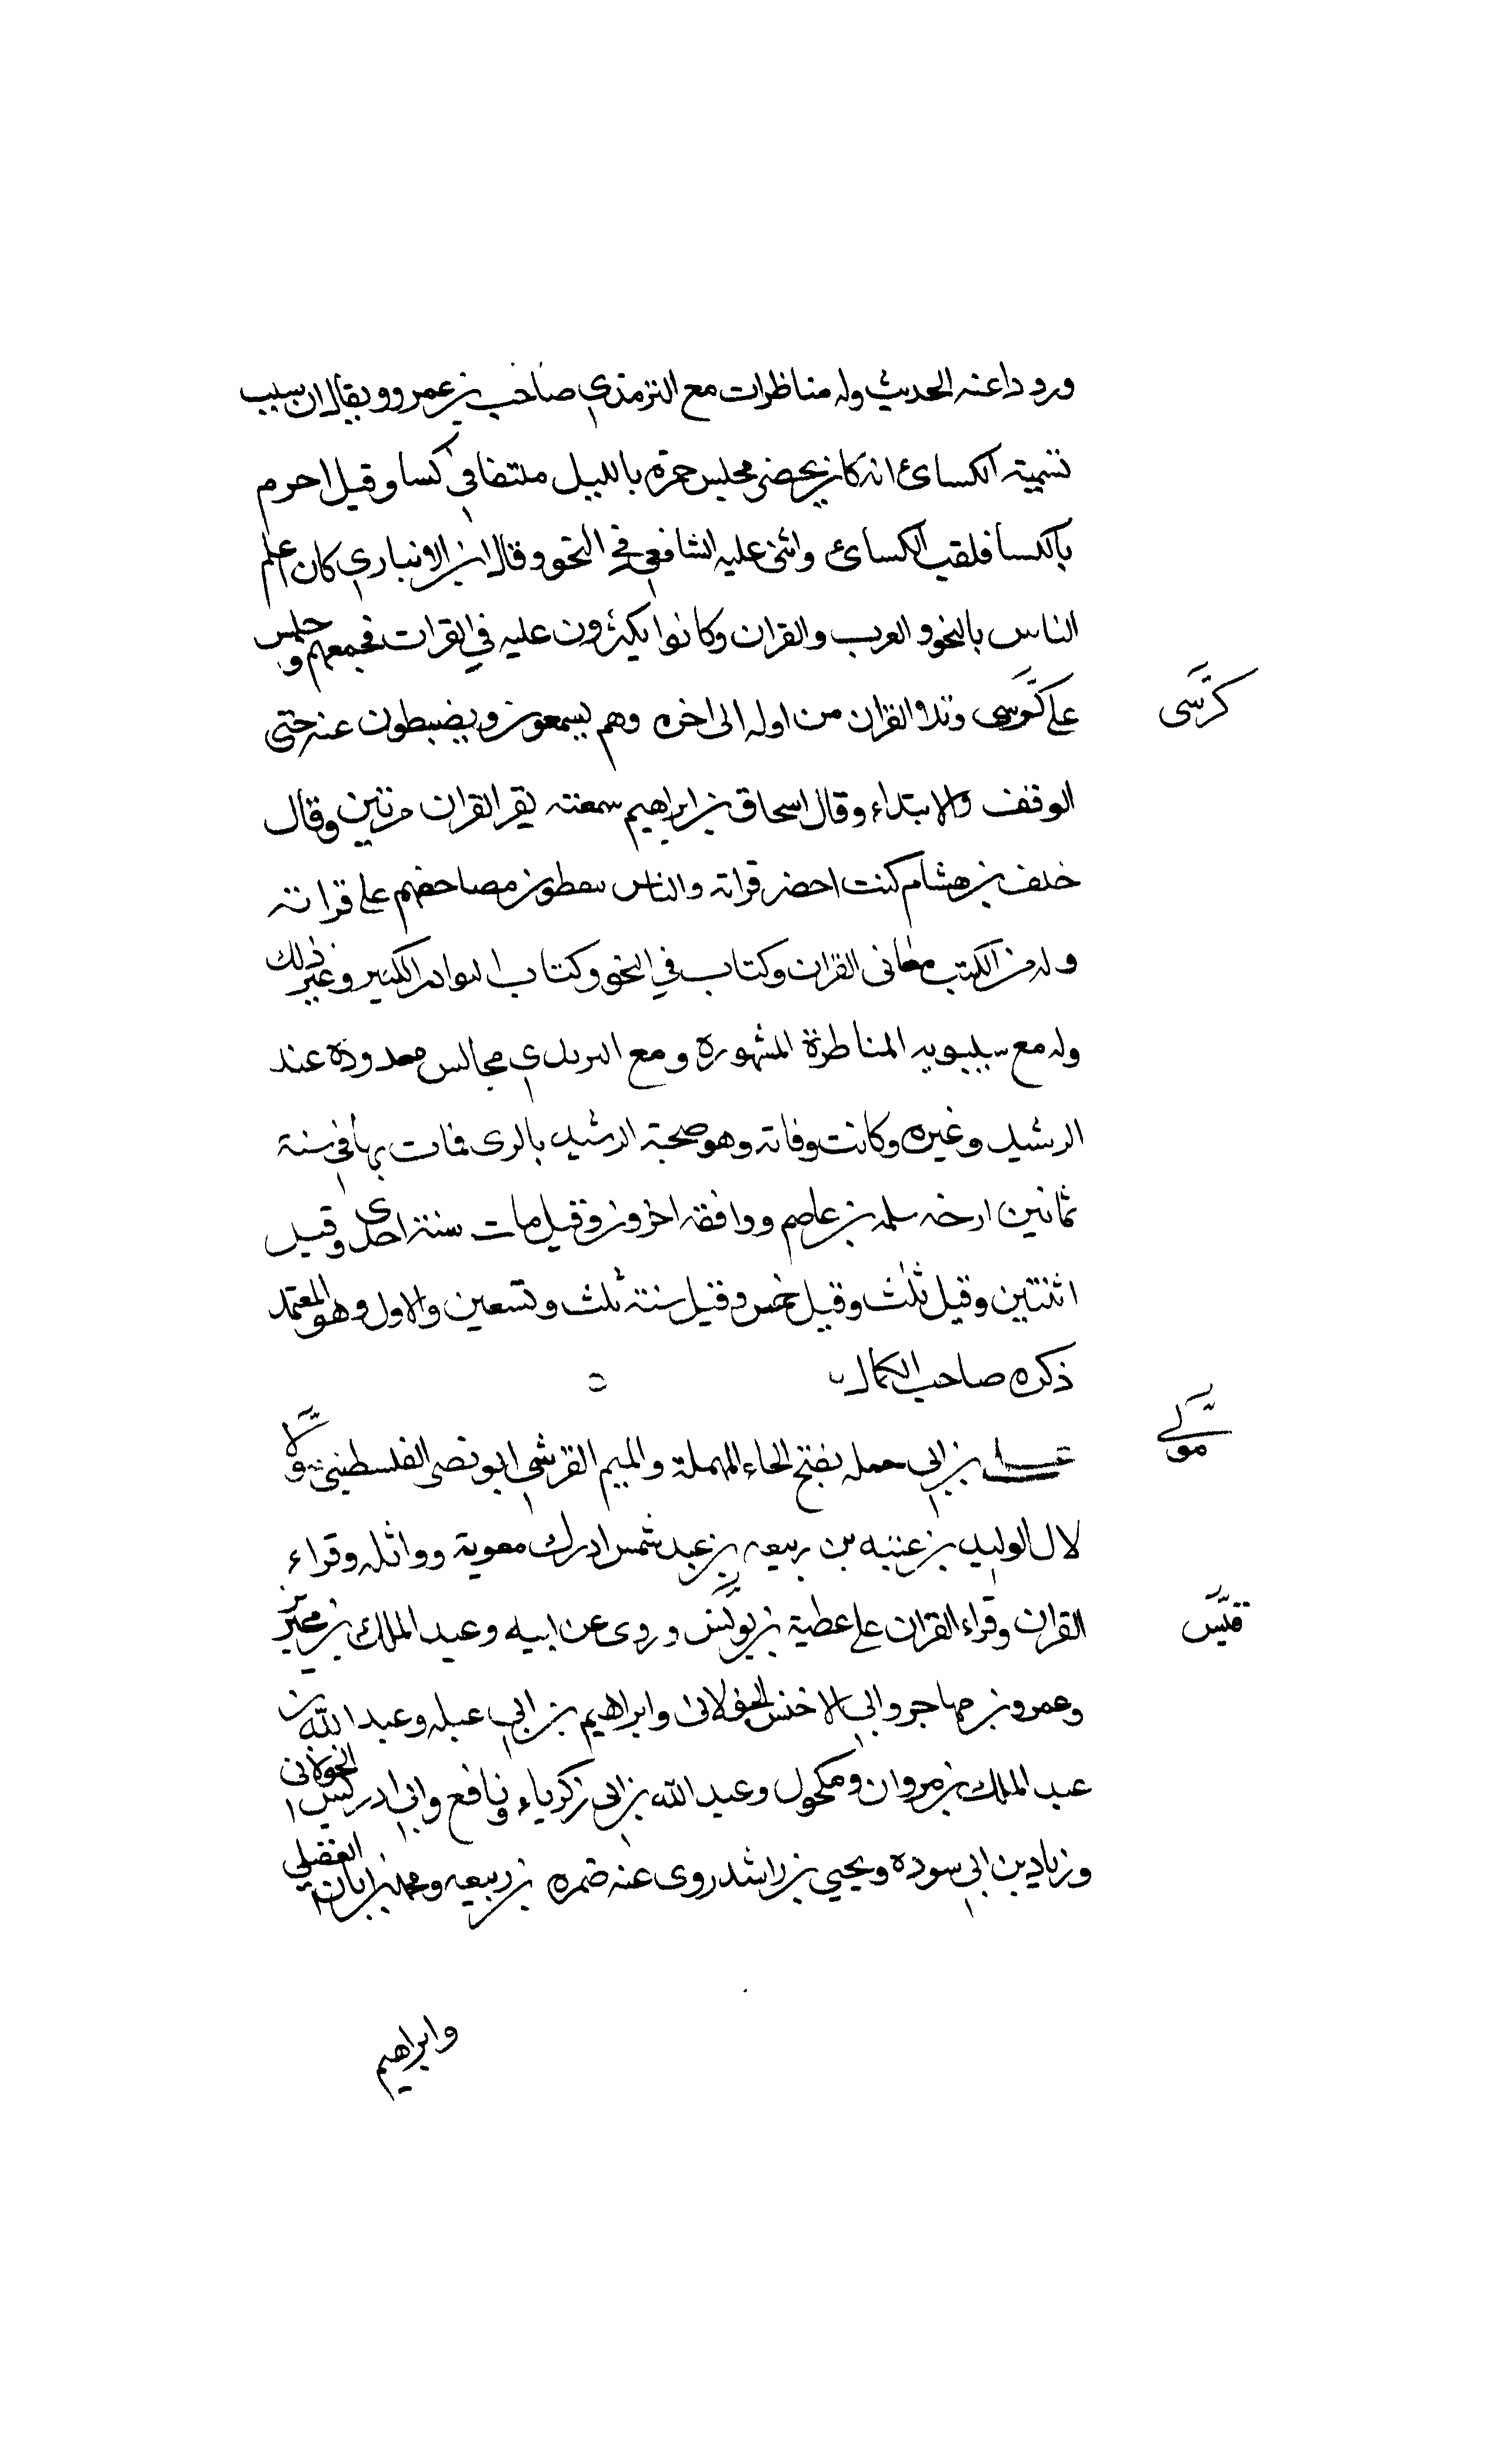 ورد داعنه الحديث وله مناظرات مع الترمذي صاحب بن عمرو ويقال ان سبب
تسمية الكسائ انه كان يحضر مجلس حمزه بالليل ملتفا في كسا وقيل احرم
بالكسا فلقب الكسائ واثنى عليه الشافعي في النحو وقال ابن الانباري كان اعلم
الناس بالنحو والعرب والقران وكانوا يكثرون عليه في القرات فجمعهم وجلس
على كرسي وتلا القران من اوله الى اخره وهم يسمعون ويضبطون عنه حتى
كرسى
الوقف والابتداء وقال اسحاق بن ابراهيم سمعته يقر القران مرتين وقال
خلف بن هشام كنت احضر قراته والناس ىىقطون مصاحفهم على قراته
وله من الكتب معانى القران وكتاب في النحو وكتاب النوادر الكبير وغير ذلك
وله مع سيبويه المناظرة المشهوره ومع اليزيدي مجالس معدوده عند
الرشيد وغيره وكانت وفاته وهو صحبة الرشيد بالرى فمات بها في سنة
ثمانين ارخه سلمه بن عاصم ووافقه اخرون وقيل مات سنة احدى وقيل
اثنتين وقيل ثلث وقيل خمس وقيل سنة ثلث وتسعين والاول وهو المعتمد
ذكره صاحب الكمال
على بن ابي حمله بفتح الحاء المهملة والميم القرشي ابو نصر الفلسطيني مولا
مولى
لال الوليد بن عتبه بن ربيعه بن عبد شمس ادرك معوية وواثله وقراء
القران وقراء القران على عطية بن يونس وروى عن ابيه وعبد الملك بن محيريز
قيس
وعمرو بن مهاجر وابي الاخنس الخولانى وابراهيم بن ابي عبله وعبد الله بن
عبد الملك بن مروان ومكحول وعبد الله بن ابى زكرياء ونافع وابي ادريس الخولانى
وزياد بن ابي سوده ويحيى بن راشد روى عنه ضمره بن ربيعه ومحمد بن ابان
وابراهيم